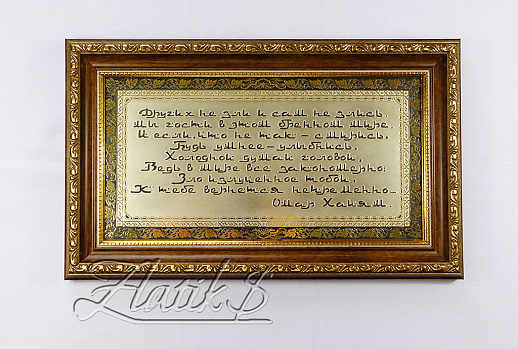 Других не зли и сам не злись,
Мы гости в этом бренном мире,
И если, что не так – смирись,
Будь умнее – улыбнись.
Холодной думай головой,
Ведь в мире все закономерно:
Зло излученное тобой,
К тебе вернется непременно...
Омар Хайям.